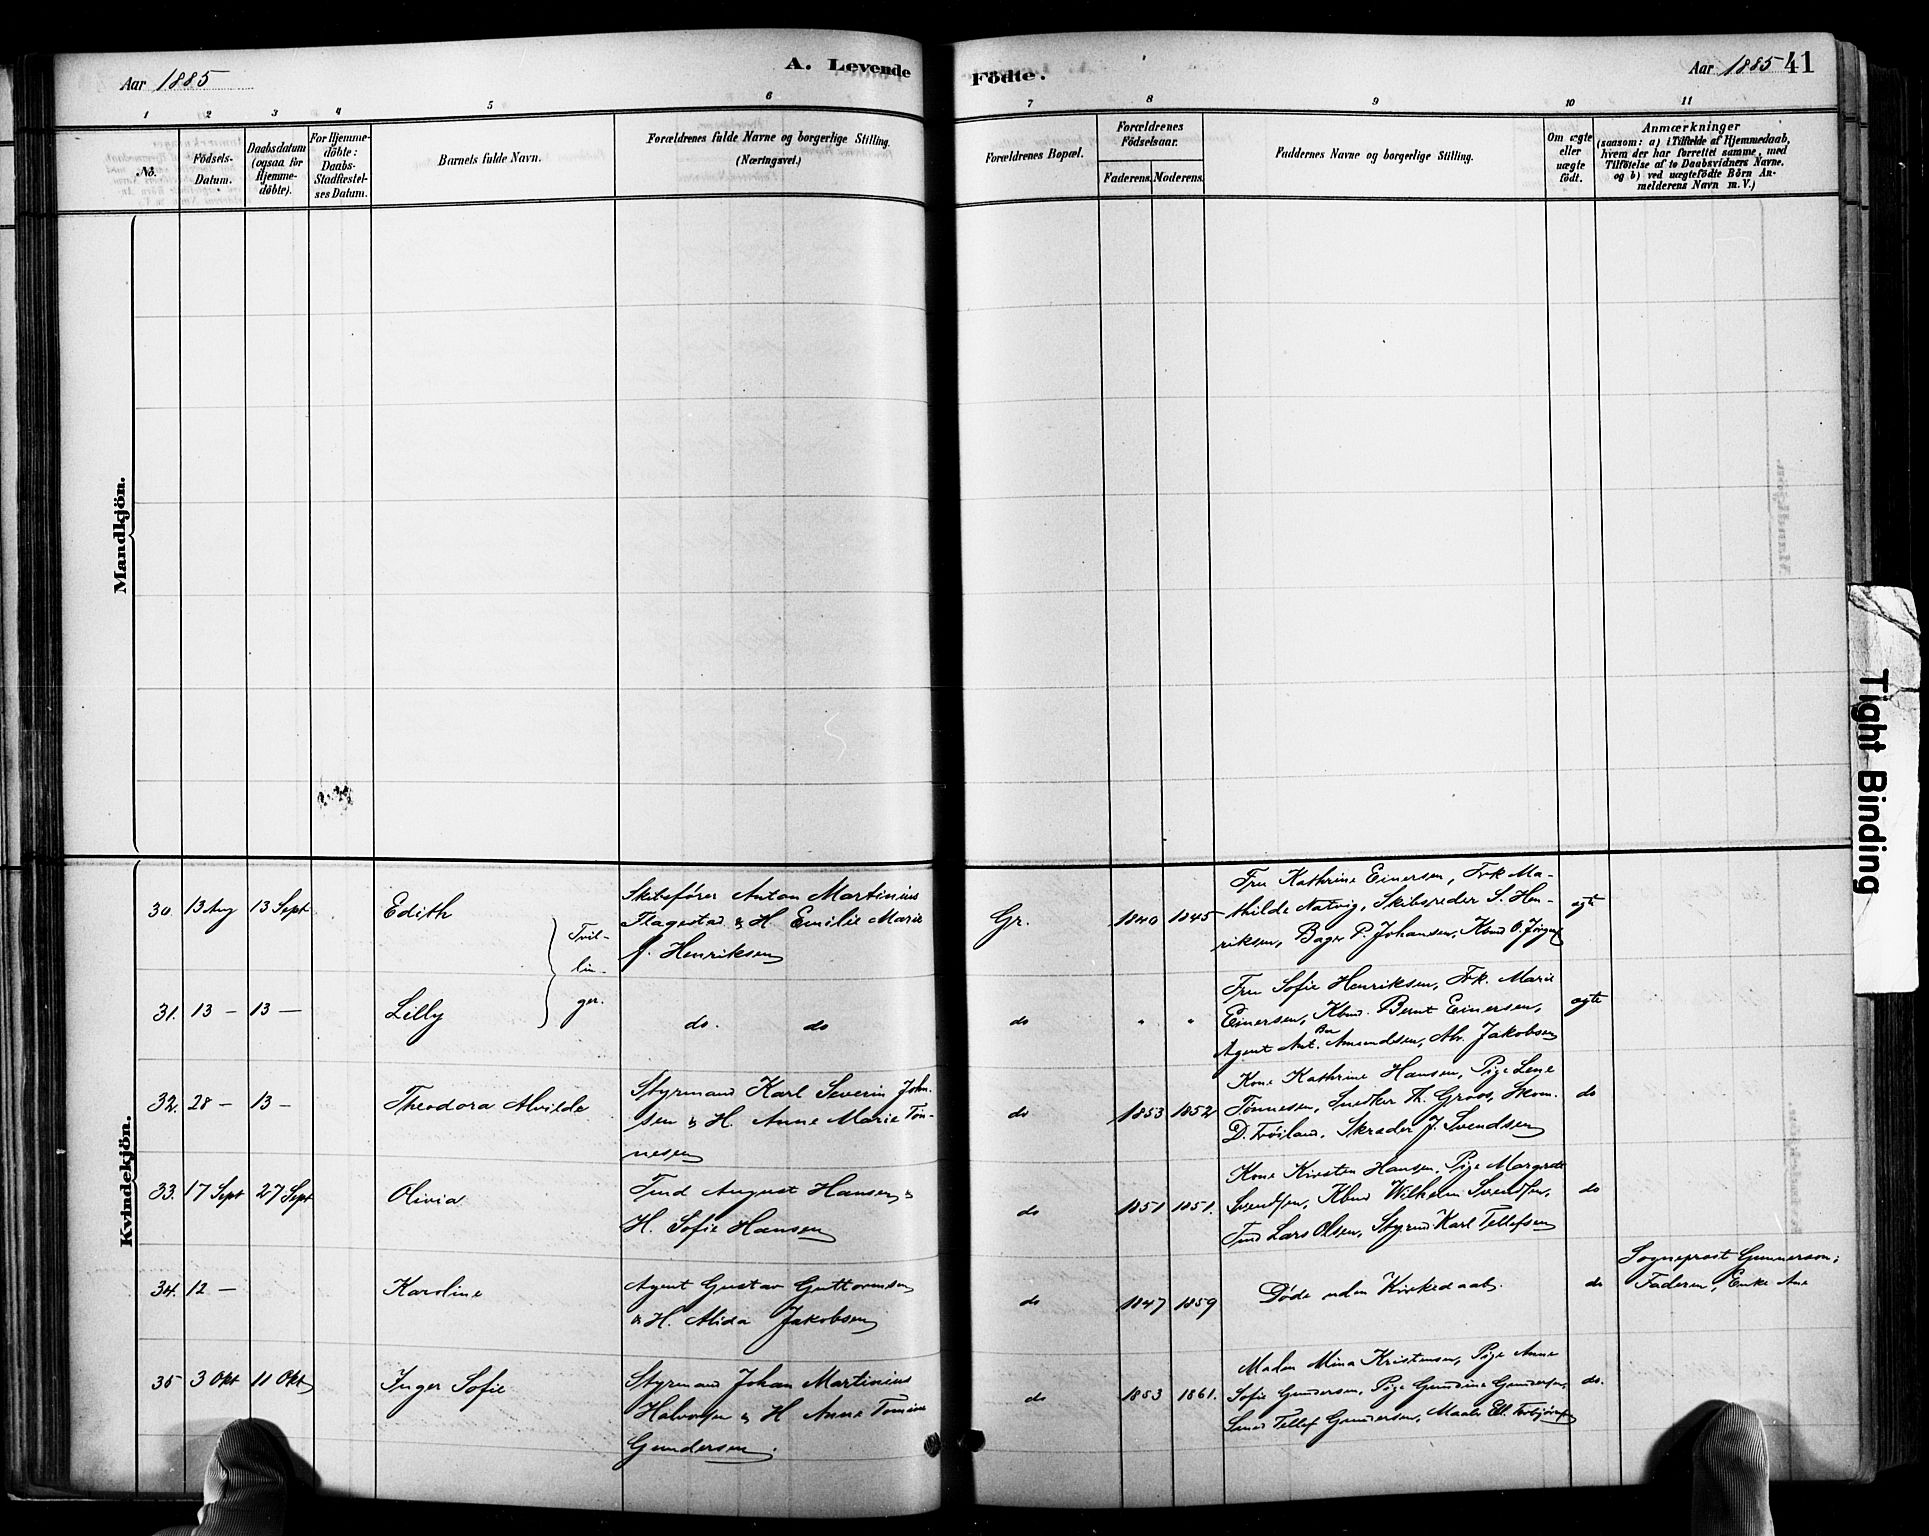 Aar 1885
A. Levende
Födte.
Aar 1885
41
1 2 3 4 5 6 7 8 9 10 11
No.
Födsels-
Datum.
Daabsdatum
(ogsaa for
Hjemme-
döbte).
For Hjemme-
döbte:
Daabs-
Stadfæstel-
ses Datum.
Barnets fulde Navn.
Forældrenes fulde Navne og borgerlige Stilling.
(Næringsvei.)
Forældrenes Bopæl.
Forældrenes
Födselsaar.
Faderens. Moderens.
Faddernes Navne og borgerlige Stilling.
Om ægte
eller
uægte
födt.
Anmærkninger
(saasom: a) i Tilfælde af Hjemmedaab,
hvem der har forrettet samme, med
Tilföielse af to Daabsvidners Navne,
og b) ved uægtefödte Börn An-
melderens Navn m. V.)
Mandkjön.
Kvindekjön.
30. 13 Aug 13 Sept
Edith
Tvil-
lin-
ger.
Skibsfører Anton Martinius
Flagestad & H. Emilie Marie
f. Henriksen
Gr.
1840 1845
Fru Kathrine Einersen, Frk Ma-
thilde Natvig, Skibsreder S. Hen-
riksen, Bager P. Johansen, Kbmd O. Jørgens
ægte
31. 13 – 13 –
Lilly
do. do
do
" "
Fru Sofie Henriksen, Frk. Marie
Einersen, Kbmd. Bernt Einersen,
Agent Ant. Amundsen, Jakobsen
ægte
32. 28 – 13 –
Theodora Alvilde
Styrmand Karl Severin John-
sen & H. Anne Marie Tøn-
nesen
do
1853 1852
Kone Kathrine Hansen, Pige Lene
Tønnesen, Snedker Th. Groos, Skom.
D. Frøiland, Skræder J. Svendsen
do
33. 17 Sept 27 Sept
Olivia
Tmd August Hansen &
H. Sofie Hansen
do
1851 1851.
Kone Kirsten Hansen, Pige Margrete
Svendsen, Kbmd Wilhelm Svendsen,
Tmd Lars Olsen, Styrmd Karl Tellefsen
do
34. 12 –
Karoline
Agent Gustav Guttormsen
& H. Alida Jakobsen
do
1847 1859
Døde uden Kirkedaab.
do
Sogneprest Gunnerson;
Faderen, Enke Ane
35 3 Okt 11 Okt
Inger Sofie
Styrmand Johan Martinius
Halvorsen & H Anne Tomine
Gundersen.
do
1853 1861.
Madm Mina Kristensen, Pige Anne
Sofie Gundersen, Pige Gundine Gundersen,
Tellef Gundersen, Maaler El. Torbjørns
do.
Tight Binding